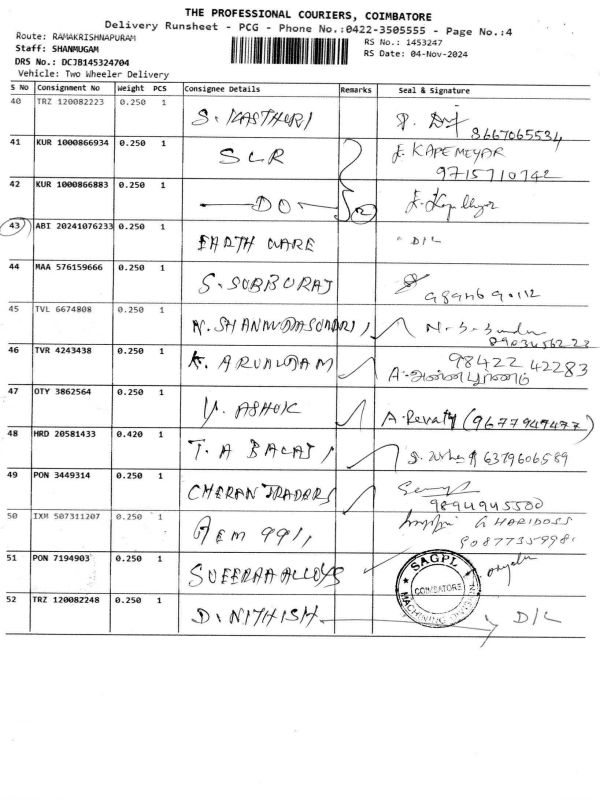 THE PROFESSIONAL COURIERS, COIMBATORE
Delivery Runsheet - PCG - Phone No.:0422-3505555 - Page No.:4
Route: RAMAKRISHNAPURAM
RS No.: 1453247
Staff: SHANMUGAM
RS Date: 04-Nov-2024
DRS No.: DCJB145324704
Vehicle: Two Wheeler Delivery
S No Consignment No Weight PCS Consignee Details Remarks Seal & Signature
40 TRZ 120082223 0.250 1 S. KASTHURI 8667065534
41 KUR 1000866934 0.250 1 SLR 9715710742
42 KUR 1000866883 0.250 1 DO
43 ABI 20241076233 0.250 1 EARTH WARE D/L
44 MAA 576159666 0.250 1 S. SUBBURAJ
45 TVL 6674808 0.250 1 N. SHANMUGASUNDARI
46 TVR 4243438 0.250 1 K. ARUNUDAM 98422 42283
47 OTY 3862564 0.250 1 V. ASHOK A. Revaty (9677947477)
48 HRD 20581433 0.420 1 T. A BALAJI 6379606589
49 PON 3449314 0.250 1 CHERAN TRADERS 9894945500
50 IXM 507311207 0.250 1 G HARIDOSS
51 PON 7194903 0.250 1 SUEERAA ALLOYS SAGPL COIMBATORE MACHINING DIVISION
52 TRZ 120082248 0.250 1 D. NITHISH D/L